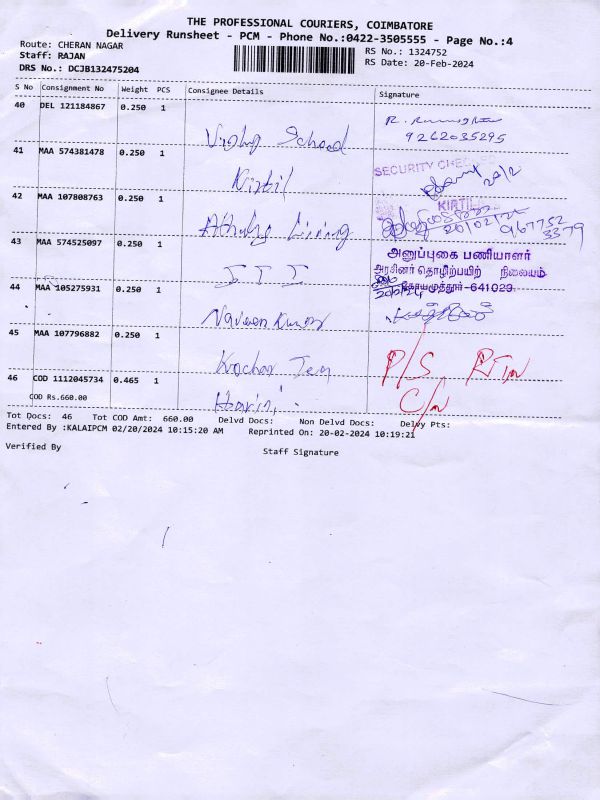 THE PROFESSIONAL COURIERS, COIMBATORE
Delivery Runsheet - PCM - Phone No.:0422-3505555 - Page No.:4
Route: CHERAN NAGAR
RS No.: 1324752
Staff: RAJAN
RS Date: 20-Feb-2024
DRS No.: DCJB132475204
S No Consignment No Weight PCS Consignee Details Signature
40 DEL 121184867 0.250 1
School
9262035295
41 MAA 574381478 0.250 1
SECURITY
Kirtil
20/2
42 MAA 107808763 0.250 1
KIRTIL
20/02/24
Living
967752
3379
43 MAA 574525097 0.250 1
அனுப்புகை பணியாளர்
அரசினர் தொழிற்பயிற் நிலையம்
I T I
44 MAA 105275931 0.250 1
கோயமுத்தூர்-641029.
Naveen Kumar
45 MAA 107796882 0.250 1
P/S RTN
46 COD 1112045734 0.465 1
C/N
COD Rs.660.00
Harini
Tot Docs: 46 Tot COD Amt: 660.00 Delvd Docs: Non Delvd Docs: Delvy Pts:
Entered By :KALAIPCM 02/20/2024 10:15:20 AM Reprinted On: 20-02-2024 10:19:21
Verified By
Staff Signature